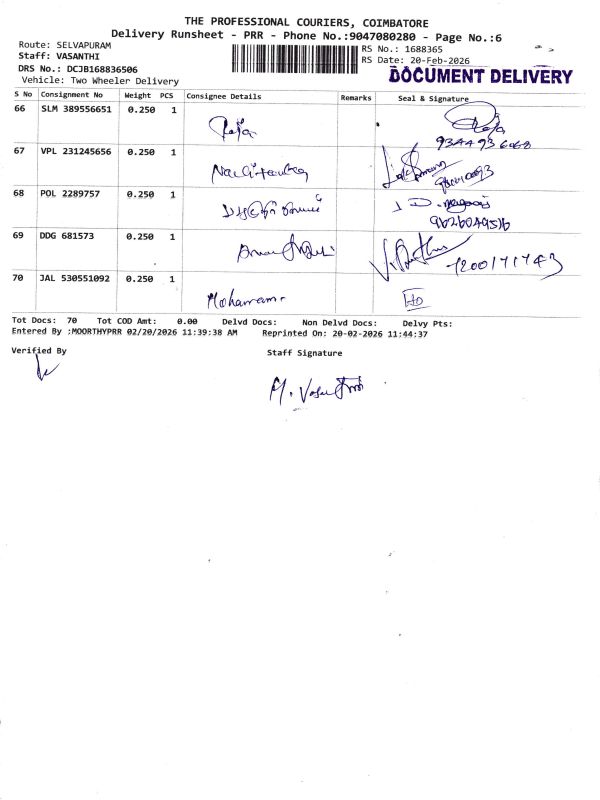 THE PROFESSIONAL COURIERS, COIMBATORE
Delivery Runsheet - PRR - Phone No.:9047080280 - Page No.:6
Route: SELVAPURAM
Staff: VASANTHI
DRS No.: DCJB168836506
Vehicle: Two Wheeler Delivery
RS No.: 1688365
RS Date: 20-Feb-2026
DOCUMENT DELIVERY
S No Consignment No Weight PCS Consignee Details Remarks Seal & Signature
66 SLM 389556651 0.250 1 Raja Raja
67 VPL 231245656 0.250 1
68 POL 2289757 0.250 1
69 DDG 681573 0.250 1 7200171743
70 JAL 530551092 0.250 1 Moharram.
Tot Docs: 70 Tot COD Amt: 0.00 Delvd Docs: Non Delvd Docs: Delvy Pts:
Entered By :MOORTHYPRR 02/20/2026 11:39:38 AM Reprinted On: 20-02-2026 11:44:37
Verified By
Staff Signature
M.